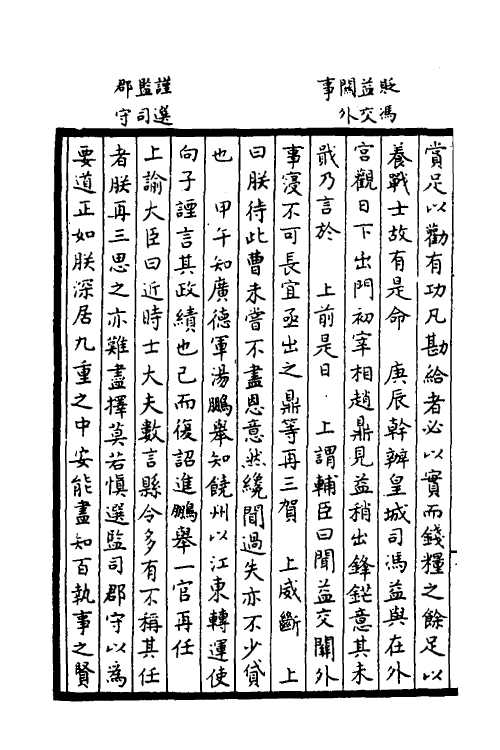 貶馮
益交
闗外
事
謹選
監司
郡守
賞足以勸有功凡勘給者必以實而錢糧之餘足以
養戰士故有是命　庚辰幹辦皇城司馮益與在外
宮觀日下出門初宰相趙鼎見益稍出鋒鋩意其未
戢乃言於　上前是日　上謂輔臣曰聞益交闗外
事寖不可長宜亟出之鼎等再三賀　上威斷　上
曰朕待此曹未嘗不盡恩意然纔聞過失亦不少貸
也　甲午知廣德軍湯鵬舉知饒州以江東轉運使
向子諲言其政績也已而復詔進鵬舉一官再任
上諭大臣曰近時士大夫數言縣令多有不稱其任
者朕再三思之亦難盡擇莫若慎選監司郡守以為
要道正如朕深居九重之中安能盡知百執事之賢